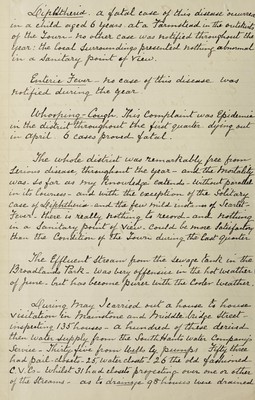 Diphtheria. a fatal case of this disease occurred
in a child aged 6 years at a Farmstead in the outskirts
of the Town - no other case was notified throughout the
year: the local surroundings presented nothing abnormal
in a sanitary point of view.
Enteric Fever - no case of this disease was
notified during the year
Whooping-Cough. This complaint was Epidemic
in the district throughout the first quarter dying out
in April. 6 cases proved fatal.
The whole district was remarkably free from
serious disease, throughout the year - and the Mortality
was so far as my knowledge extends - without parallel
in its lowness - and with the exception of the Solitary
case of Diphtheria - and the few mild instances of Scarlet
Fever. there is really nothing to record - and nothing
in a sanitary point of view. could be more satisfactory
than the condition of the Town during the last quarter
The Effluent Stream from the Sewage Tank in the
Broadlands Park - was very offensive in the hot weather
of June - but has become purer with the cooler weather.
During May I carried out a house to house
visitation in Mainstone and Middlebridge Street -
inspecting 135 houses - a hundred of these derived
their water supply from the South Hants Water Company's
Service - Thirty five from Wells by pumps Fifty three
had pail-closets - 25 water closets - 26 the old fashioned
C.V.Cs - Whilst 31 had closets projecting over one or other
of the Streams - as to drainage 98 houses were drained